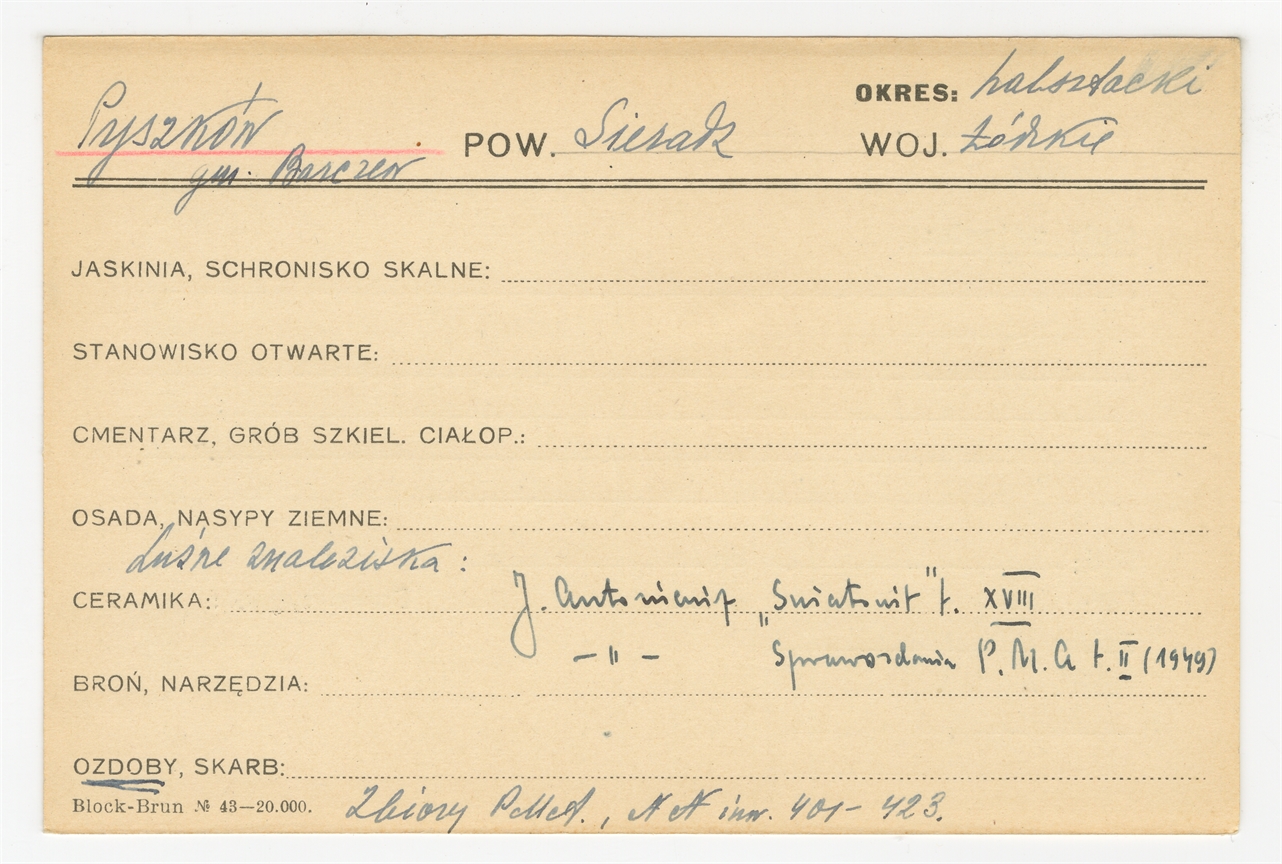 OKRES: halsztacki
Pyszków POW. Sieradz WOJ. Łódzkie
gm. Barczew
JASKINIA, SCHRONISKO SKALNE:
STANOWISKO OTWARTE:
CMENTARZ, GRÓB SZKIEL. CIAŁOP.:
OSADA, NASYPY ZIEMNE:
Luźne znaleziska:
CERAMIKA: J. Antoniewicz „Światowit" t. XVIII
— " — Sprawozdania P.M.A t. II (1949)
BROŃ, NARZĘDZIA:
OZDOBY, SKARB:
Block-Brun № 43—20.000. Zbiory PMA., NN inw. 401-423.